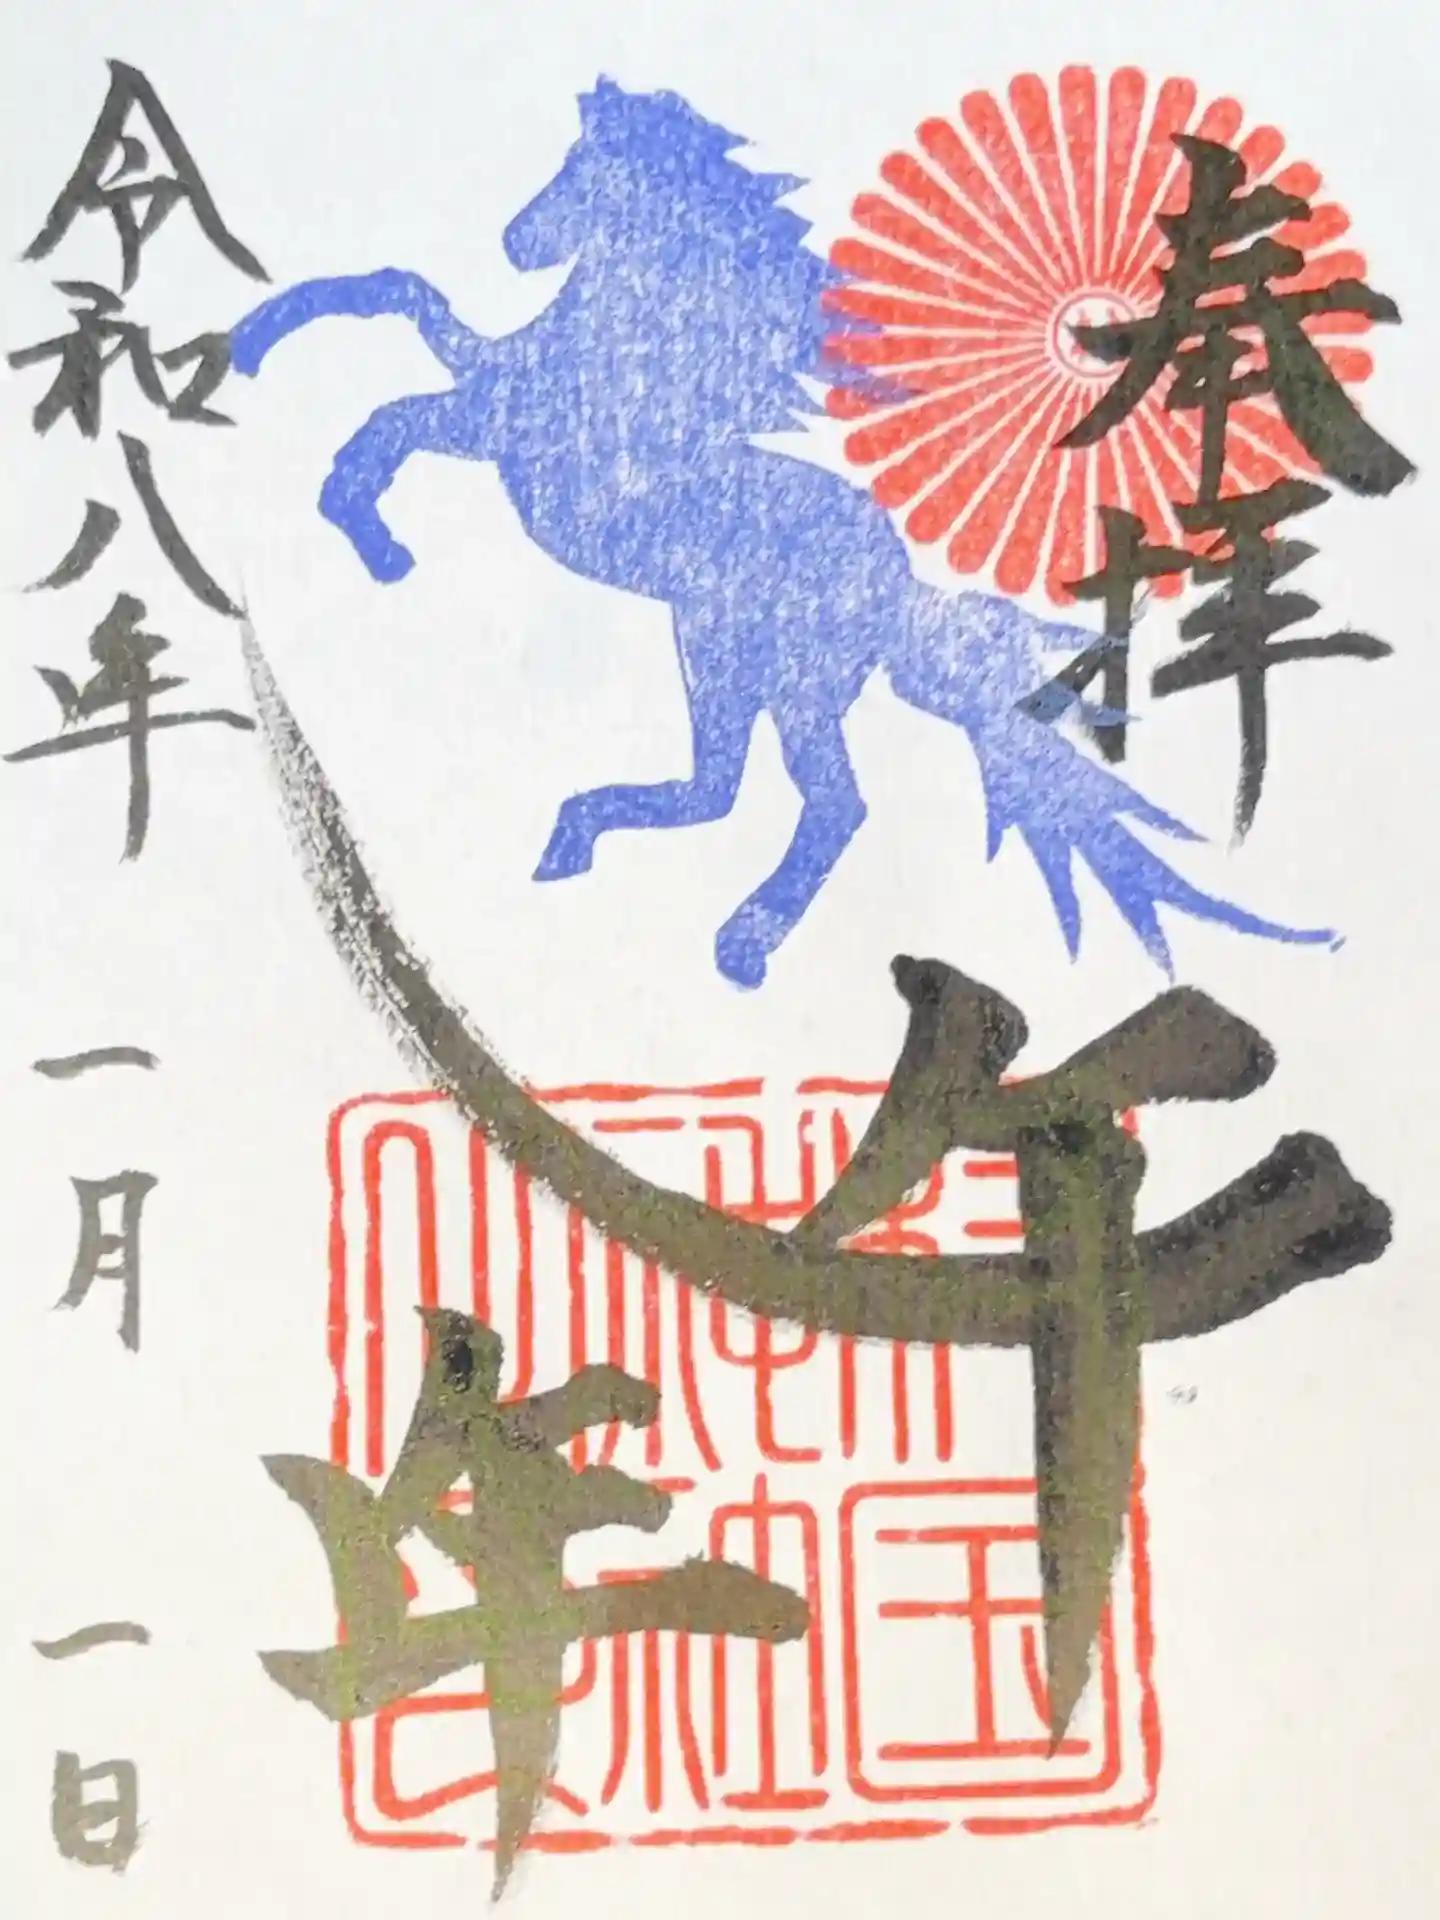 奉拝
午
年
令和八年
一月
一日